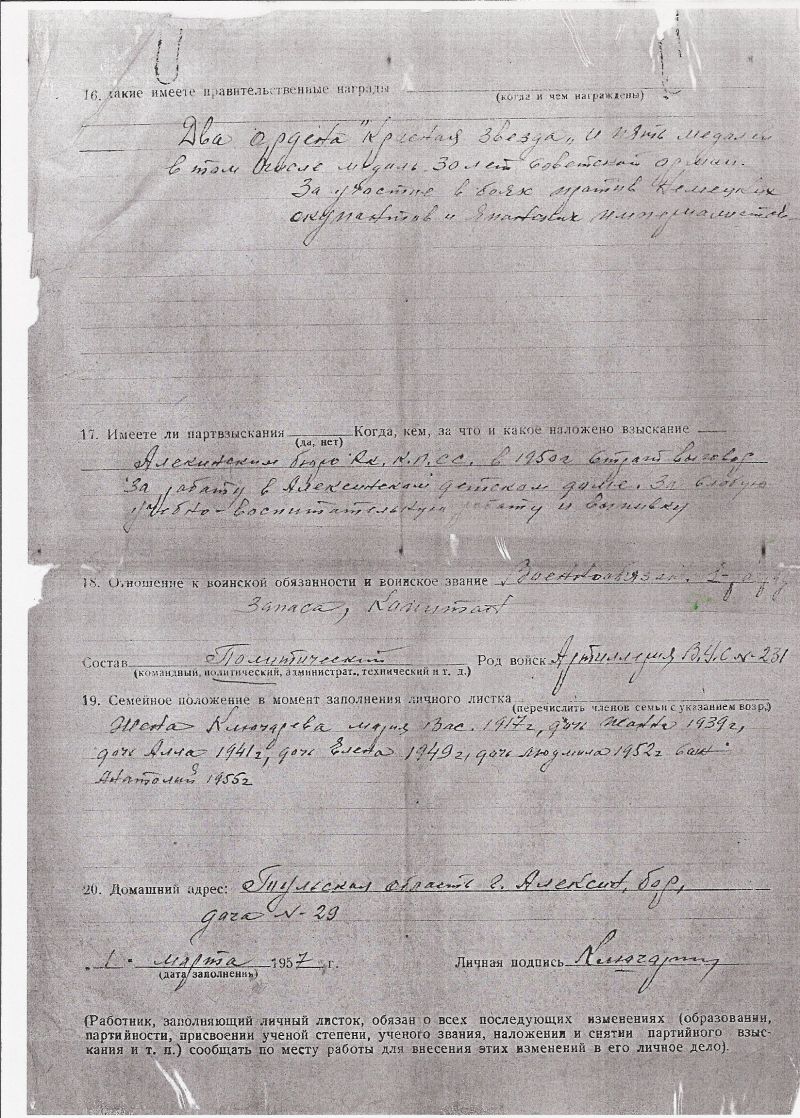 16. Какие имеете правительственные награды
(когда и чем награждены)
Два ордена "Красная Звезда" и пять медалей
в том числе медаль 30 лет советской армии.
За участие в боях против Немецких
окупантов и Японских империалистов
17. Имеете ли партвзыскания Когда, кем, за что и какое наложено взыскание
(да, нет)
Алекинским бюро Рк. К.П.СС. в 1950г строг выговор
За работу в Алексинском детском доме. За слабую
учебно-воспитательную работу и выпивку
18. Отношение к воинской обязанности и воинское звание Военнообязан.
Запаса, Капитан
Состав Политический Род войск Артиллерия В.У.С N-231
(командный, политический, администрат., технический и т. д.)
19. Семейное положение в момент заполнения личного листка
(перечислить членов семьи с указанием возр.)
Жена Ключарева мария Вас. 1917г, дочь Жанна 1939г,
дочь Алла 1941г, дочь Елена 1949г, дочь людмила 1952г
Анатолий 1955г
20. Домашний адрес: Тульская область г. Алексин, бор,
дача N-29
1 марта 1957 г. Личная подпись
(дата заполнения)
(Работник, заполняющий личный листок, обязан о всех последующих изменениях (образовании,
партийности, присвоении ученой степени, ученого звания, наложении и снятии партийного взыс-
кания и т. п.) сообщать по месту работы для внесения этих изменений в его личное дело).